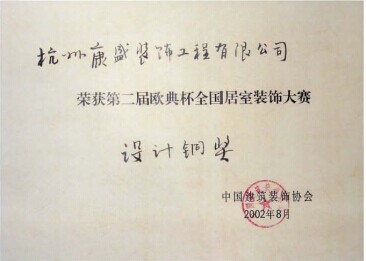 杭州康盛装饰工程有限公司
荣获第二届欧典杯全国居室装饰大赛
设计铜奖
中国建筑装饰协会
2002年8月